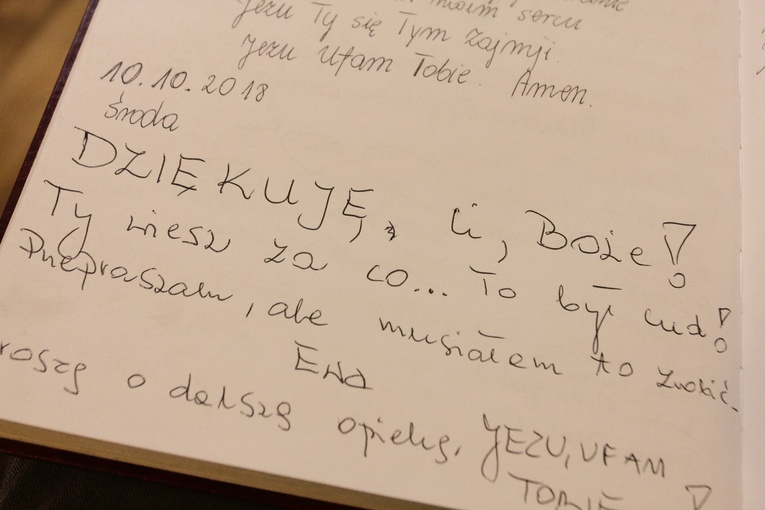 moim sercu
Jezu Ty się Tym zajmij.
Jezu Ufam Tobie. Amen.
10.10.2018
środa
DZIĘKUJĘ, Ci, Boże!
Ty wiesz za co... To był cud!
Przepraszam, ale musiałem to zrobić.
Ewa
roszę o dalszą opiekę, JEZU, UFAM
TOBIE!